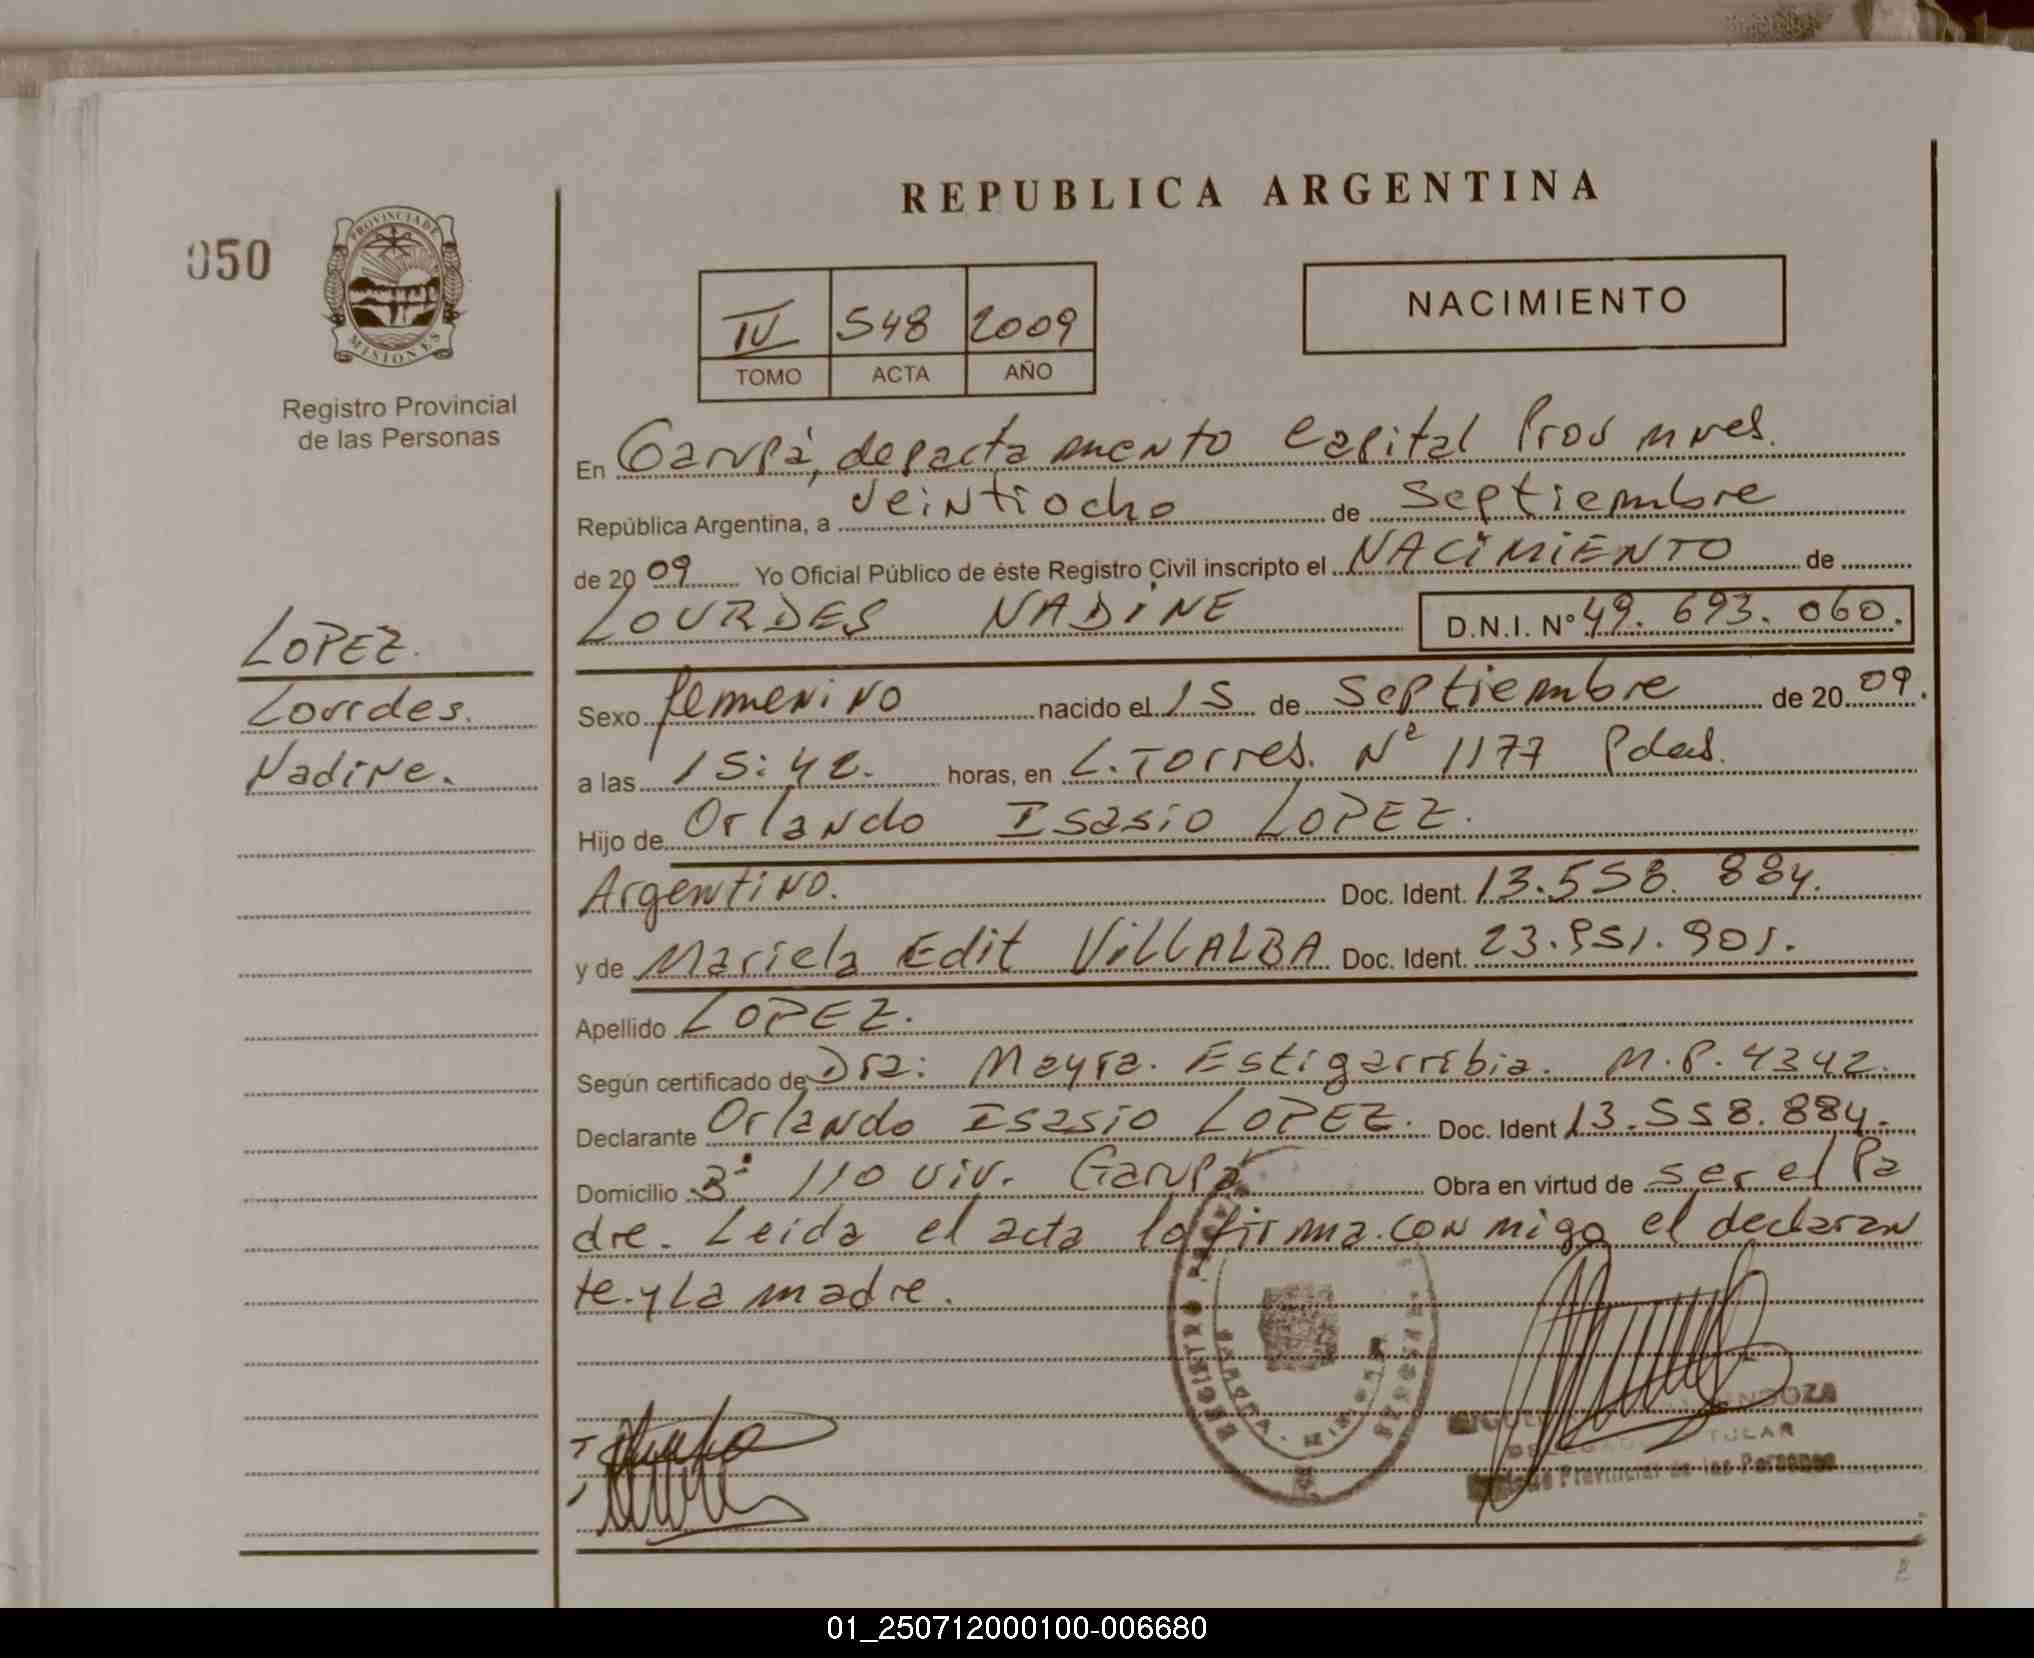 REPUBLICA ARGENTINA
050
PROVINCIA DE
MISIONES
Registro Provincial
de las Personas
NACIMIENTO
IV 548 2009
TOMO ACTA AÑO
En Garupá, departamento Capital Prov mnes.
República Argentina, a veintiocho de septiembre
de 2009 Yo Oficial Público de éste Registro Civil inscripto el NACIMIENTO de
LOURDES NADINE D.N.I. Nº 49.693.060.
LOPEZ.
Lourdes.
Nadine.
Sexo femenino nacido el 15 de septiembre de 2009.
a las 15:42. horas, en L. Torres. Nº 1177 Pdas.
Hijo de Orlando Isasio LOPEZ.
Argentino. Doc. Ident. 13.558.884.
y de Mariela Edit VILLALBA Doc. Ident. 23.951.901.
Apellido LOPEZ.
Según certificado de Dra: Mayra. Estigarribia. M.P. 4342.
Declarante Orlando Isasio LOPEZ. Doc. Ident 13.558.884.
Domicilio 110 viv. Garupá Obra en virtud de ser el Pa
dre. Leida el acta la firma conmigo el declaran
te y La madre.
REGISTRO
MENDOZA
TITULAR
Provincial de las Personas
01_250712000100-006680